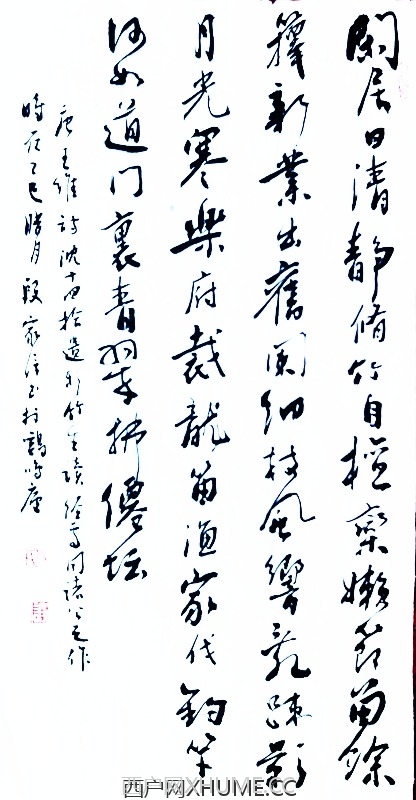 閑居日清靜脩竹自檀欒嫩節留餘
籜新叢出舊闌細枝風響亂疎影
月光寒樂府裁龍笛漁家伐釣竿
何如道門裏青翠拂僊坛
唐王維詩沈十四拾遺新竹生讀經處同諸公之作
時在乙巳腊月段家书於鶴鳴廬
西户网XHUME.CC